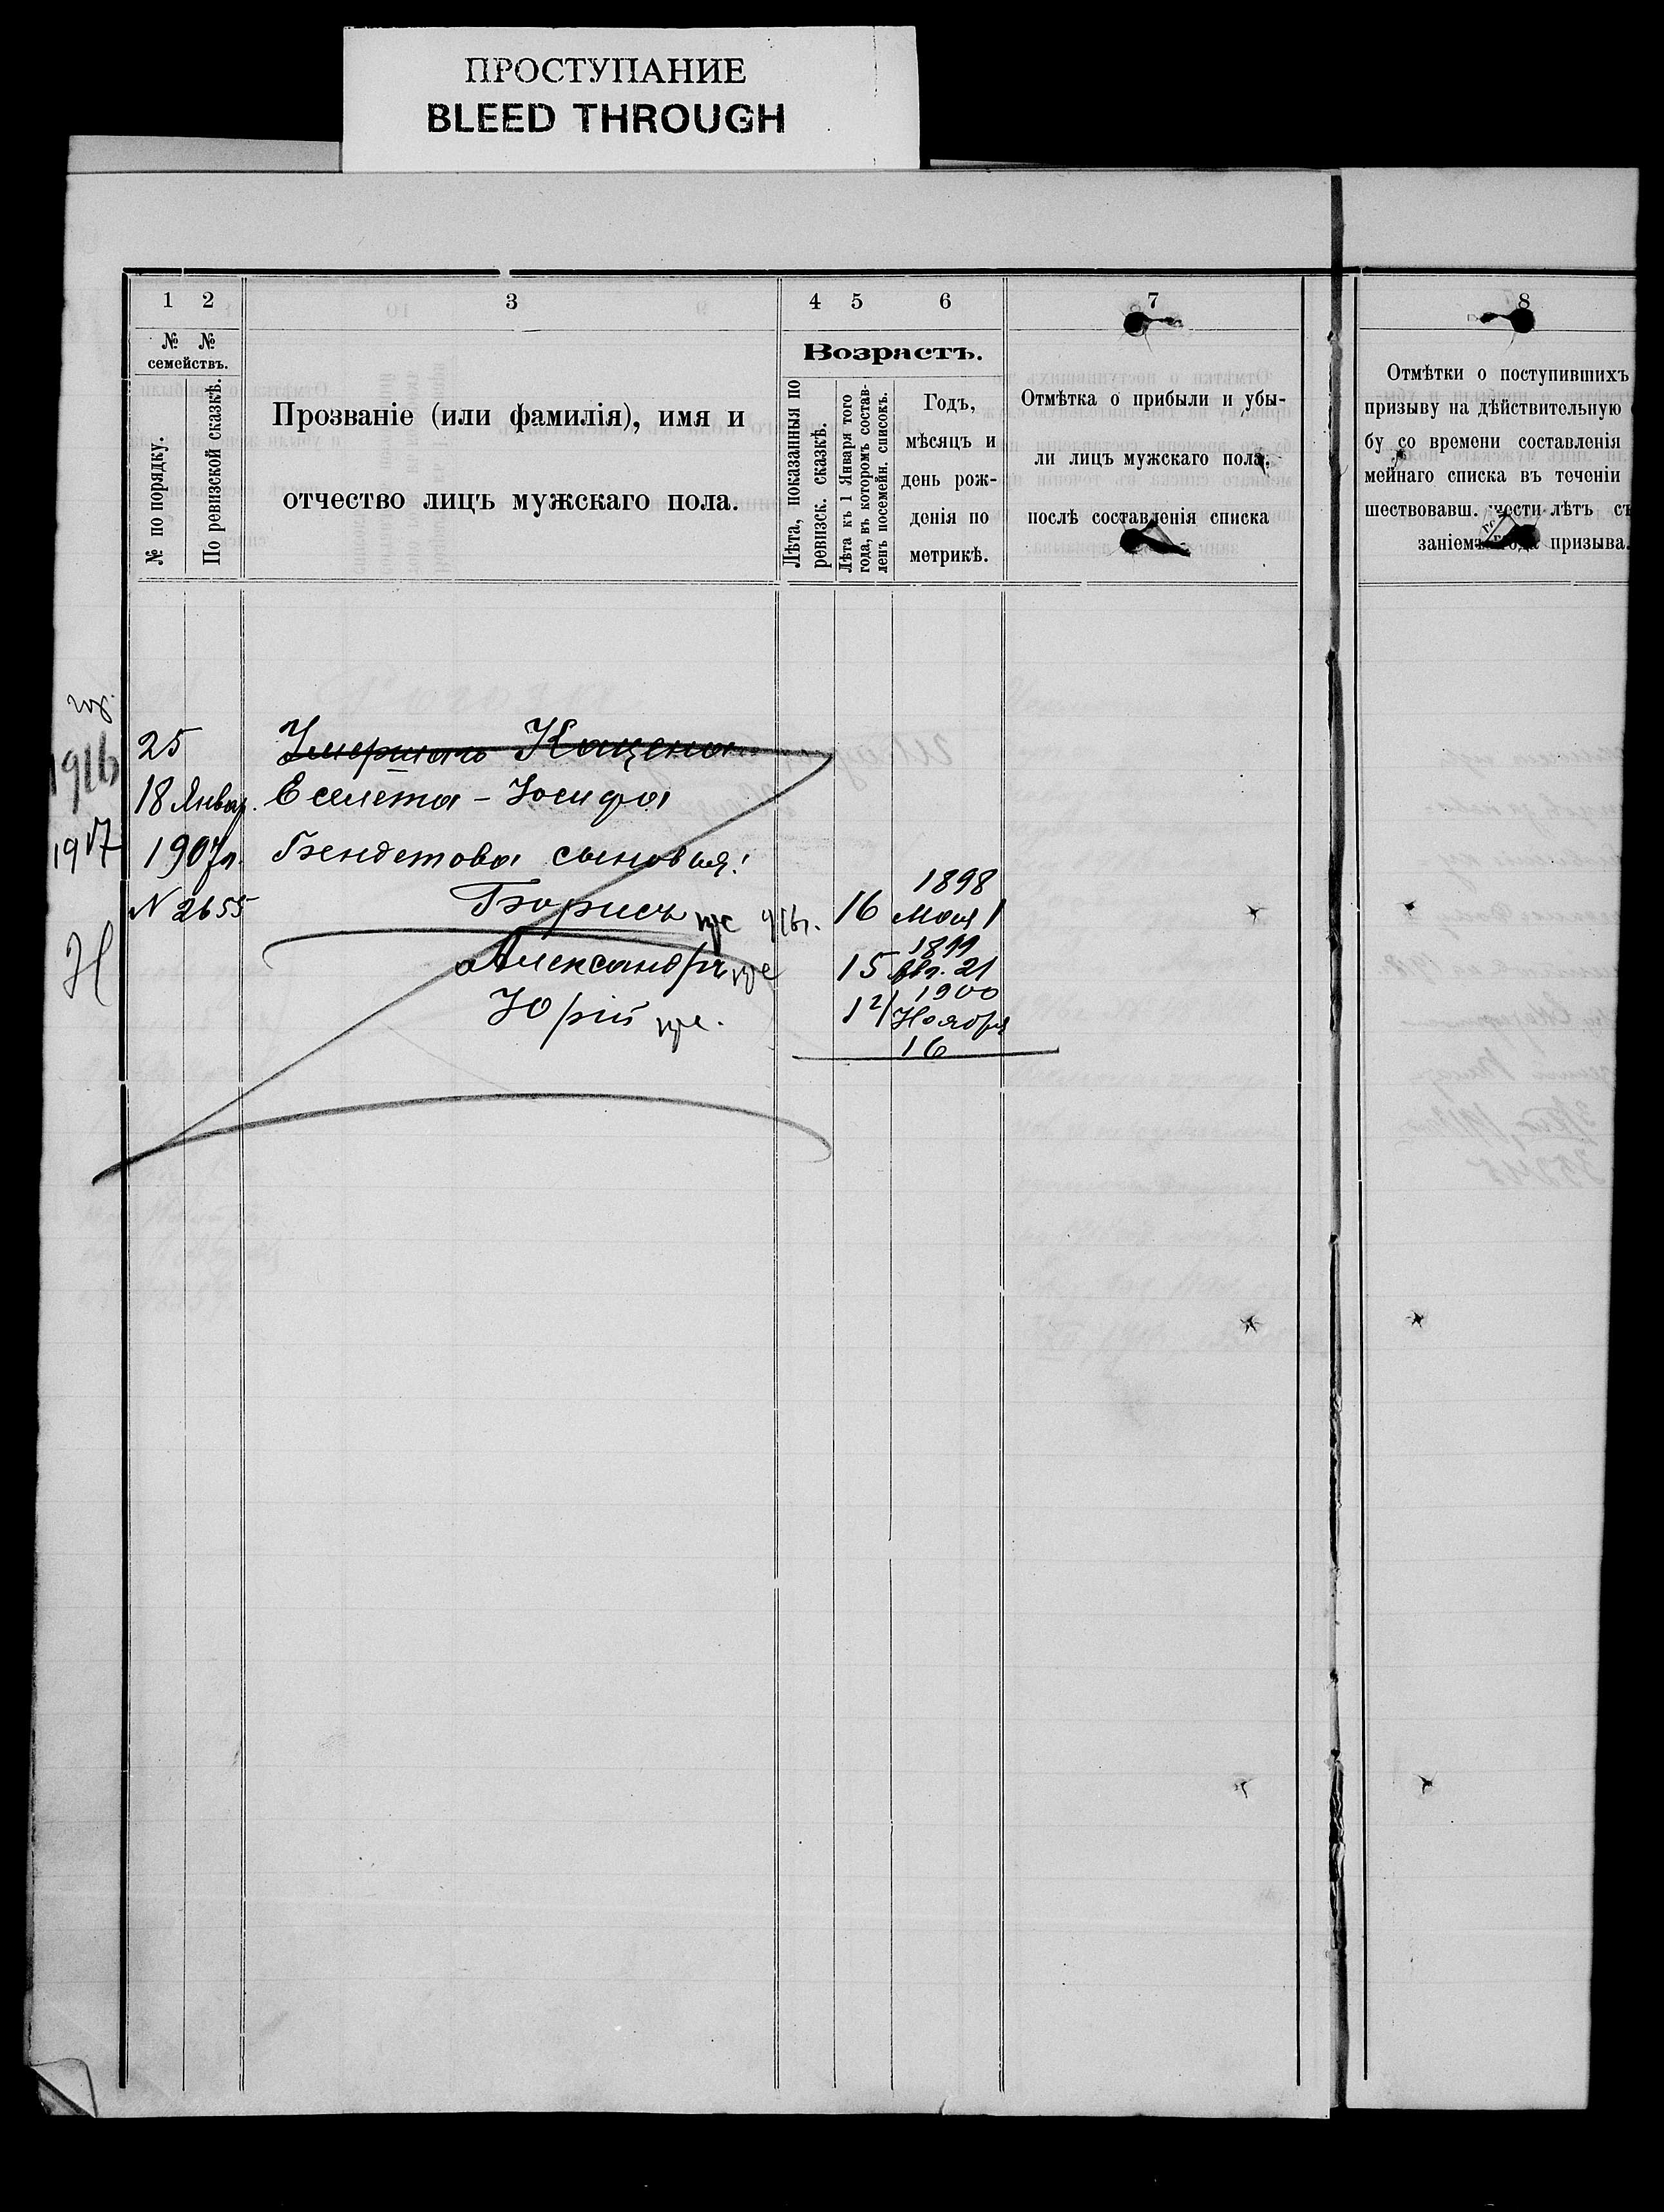 ПРОСТУПАНИЕ
BLEED THROUGH
1 2 3 4 5 6 7 8
№ № семействъ.
№ по порядку.
По ревизской сказкѣ.
Прозваніе (или фамилія), имя и
отчество лицъ мужскаго пола.
Возрастъ.
Лѣта, показанныя по
ревизск. сказкѣ.
Лѣта къ 1 Января того
года, въ которомъ состав-
ленъ посемейн. списокъ.
Годъ,
мѣсяцъ и
день рож-
денія по
метрикѣ.
Отмѣтка о прибыли и убы-
ли лицъ мужскаго пола,
послѣ составленія списка
Отмѣтки о поступившихъ
призыву на дѣйствительную
бу со времени составленія
мейнаго списка въ теченіи
шествовавш. шести лѣтъ съ
заніемъ года призыва.
1916
1917
25 Умершаго Кацена
18 Январ. Еселета-Іосифа
1907 г. Бендетова сыновья:
N 2655 Борисъ 16 1898 Мая 1
Александръ 15 1899 Авг. 21
Юрій 12/ 1900 Ноября
16